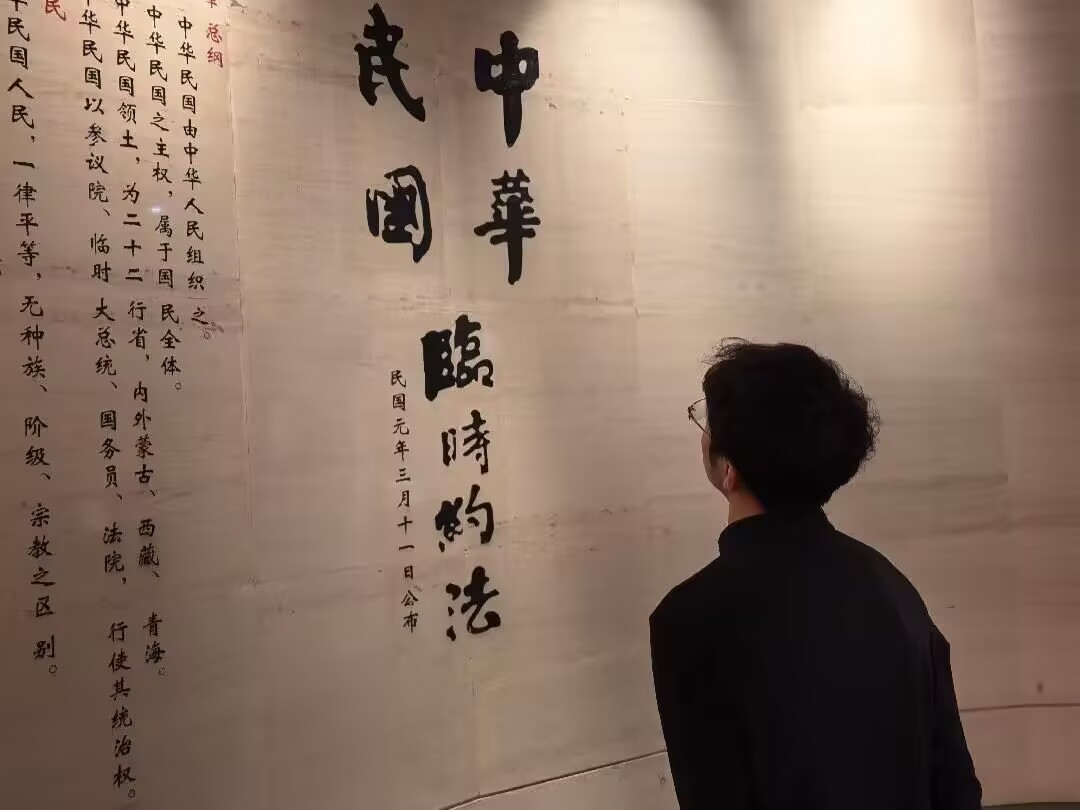 中華
民國
臨時約法
民国元年三月十一日公布
总纲
中华民国由中华人民组织之。
中华民国之主权，属于国民全体。
中华民国领土，为二十二行省，内外蒙古、西藏、青海。
华民国以参议院、临时大总统、国务员、法院，行使其统治权。
民
华民国人民，一律平等，无种族、阶级、宗教之区别。